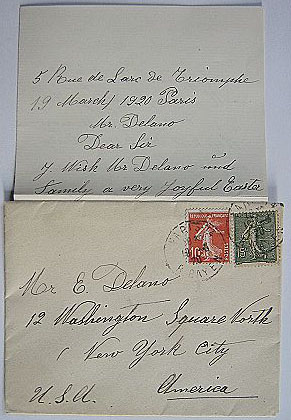 5 Rue de Larc de Triomphe
19 March 1920 Paris
Mr. Delano
Dear Sir
J. Wish Mr Delano und
Family a very Joyful Easter
RÉPUBLIQUE FRANÇAISE
10
POSTES
15
Mr E. Delano
12 Washington Square North
New York City
America
U.S.A.